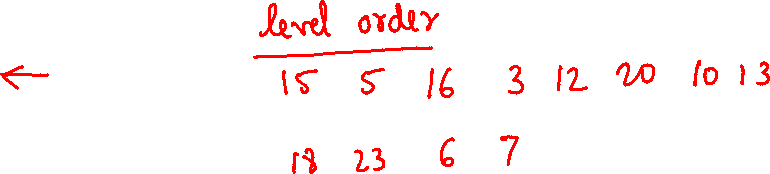 level order
15 5 16 3 12 20 10 13
18 23 6 7